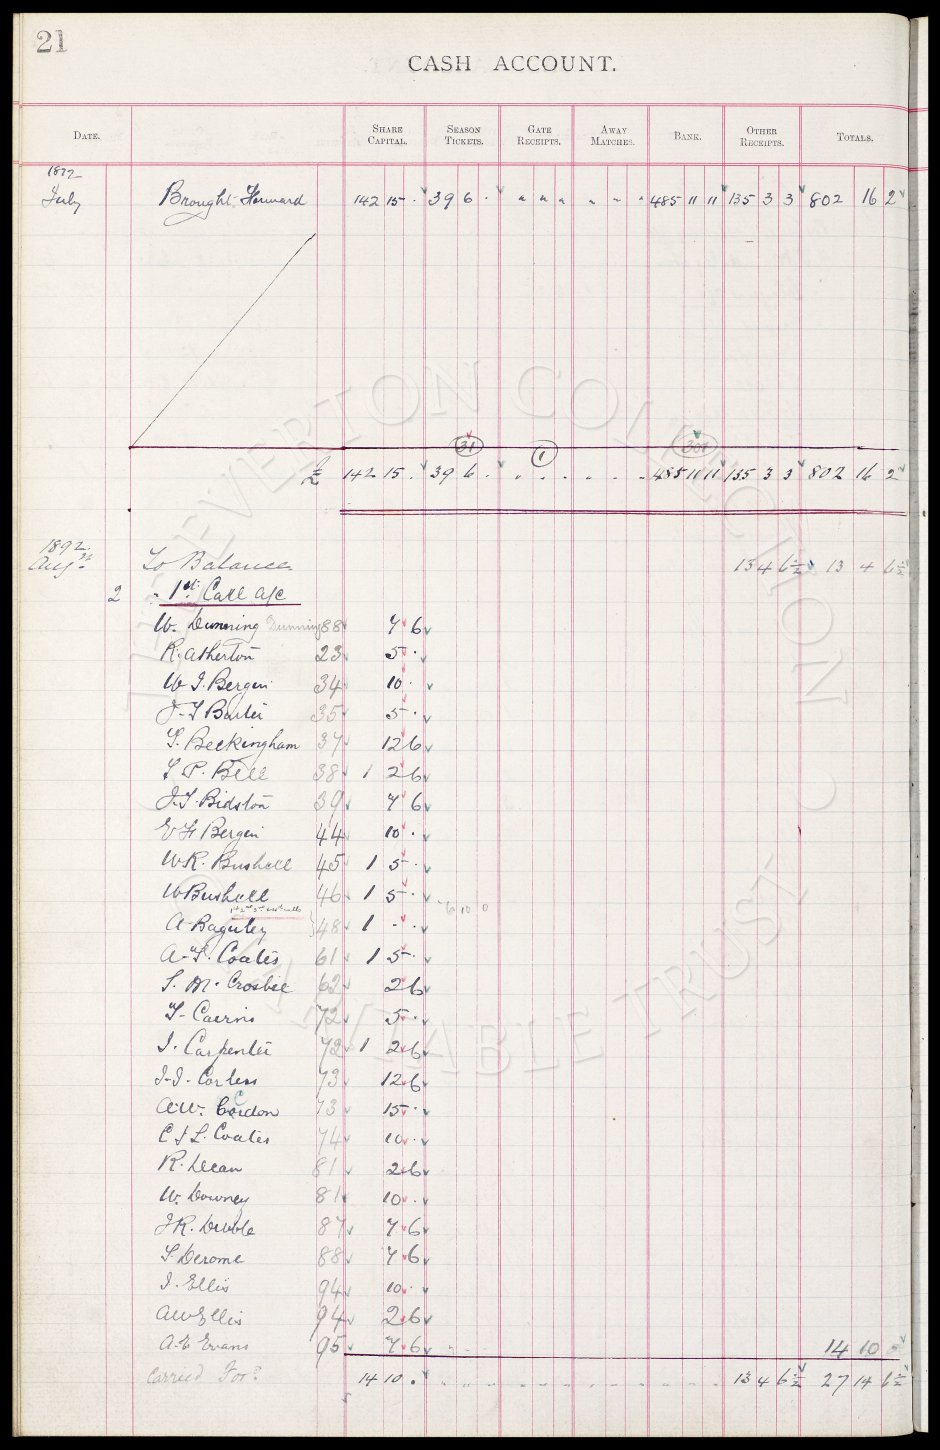 21
CASH ACCOUNT.
DATE. SHARE CAPITAL. SEASON TICKETS. GATE RECEIPTS. AWAY MATCHES. BANK. OTHER RECEIPTS. TOTALS.
1892
July Brought Forward 142 15 . 39 6 . " " " " " " 485 11 11 135 3 3 802 16 2
31 1 301
£ 142 15 . 39 6 . " . . . . . 485 11 11 135 3 3 802 16 2
1892
Aug. To Balance 13 4 6½ 13 4 6½
2 " 1st Call a/c
W. Dunning Dunning 88 7 6
R. Atherton 23 5 .
W J. Bergin 34 10 .
35 5 .
Beckingham 37 12 6
P. Bell 38 1 2 6
J.T. Bidston 39 7 6
Bergin 44 10 .
W.R. Bushell 45 1 5 .
W Bushell 46 1 5 . 6 10 0
A Baguley 48 1 - .
A. T. Coates 61 1 5 .
S. M. Crosbie 62 2 6
T. Cairns 72 5 .
J. Carpenter 72 1 2 6
J. J. Corless 73 12 6
A.W. Cordon 73 15 .
C J L. Coates 74 10 .
R. Dean 81 2 6
W. Downey 81 10 .
J R. Dibble 87 7 6
S. Derome 88 7 6
J. Ellis 94 10 .
A W Ellis 94 2 6
A. E Evans 95 7 6 14 10 .
Carried For? 14 10 . 13 4 6½ 27 14 6½
THE EVERTON COLLECTION
CHARITABLE TRUST
©